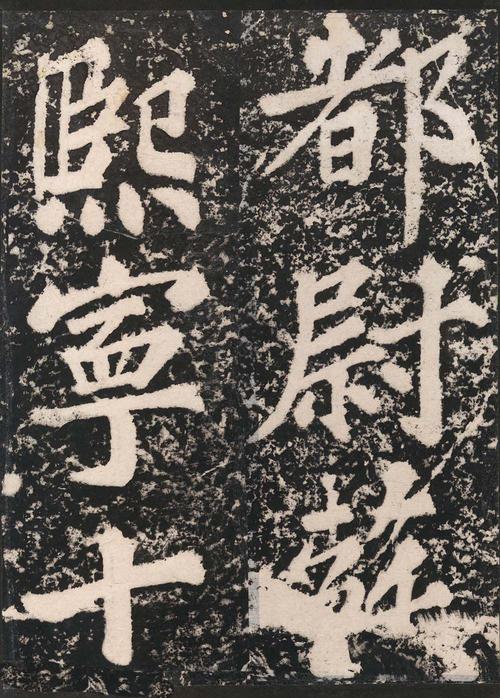 都尉
熙寧十